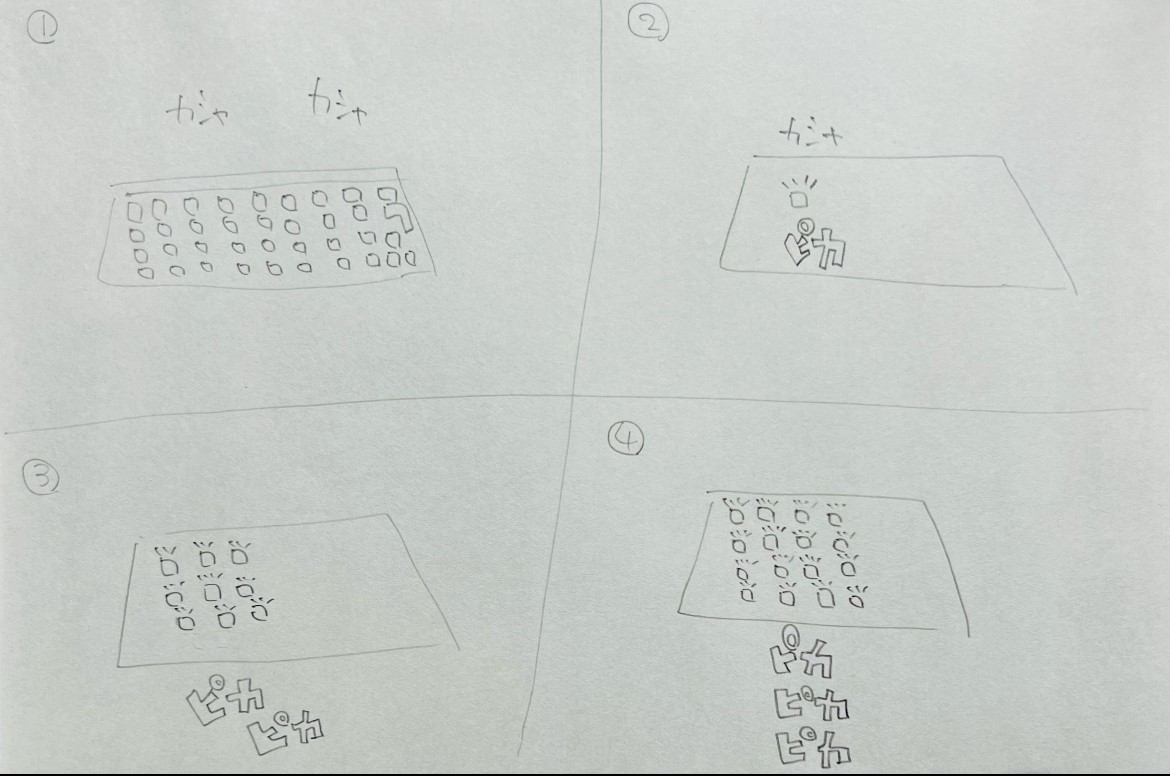 ①
カシャ カシャ
②
カシャ
ピカ
③
ピカ
ピカ
④
ピカ
ピカ
ピカ